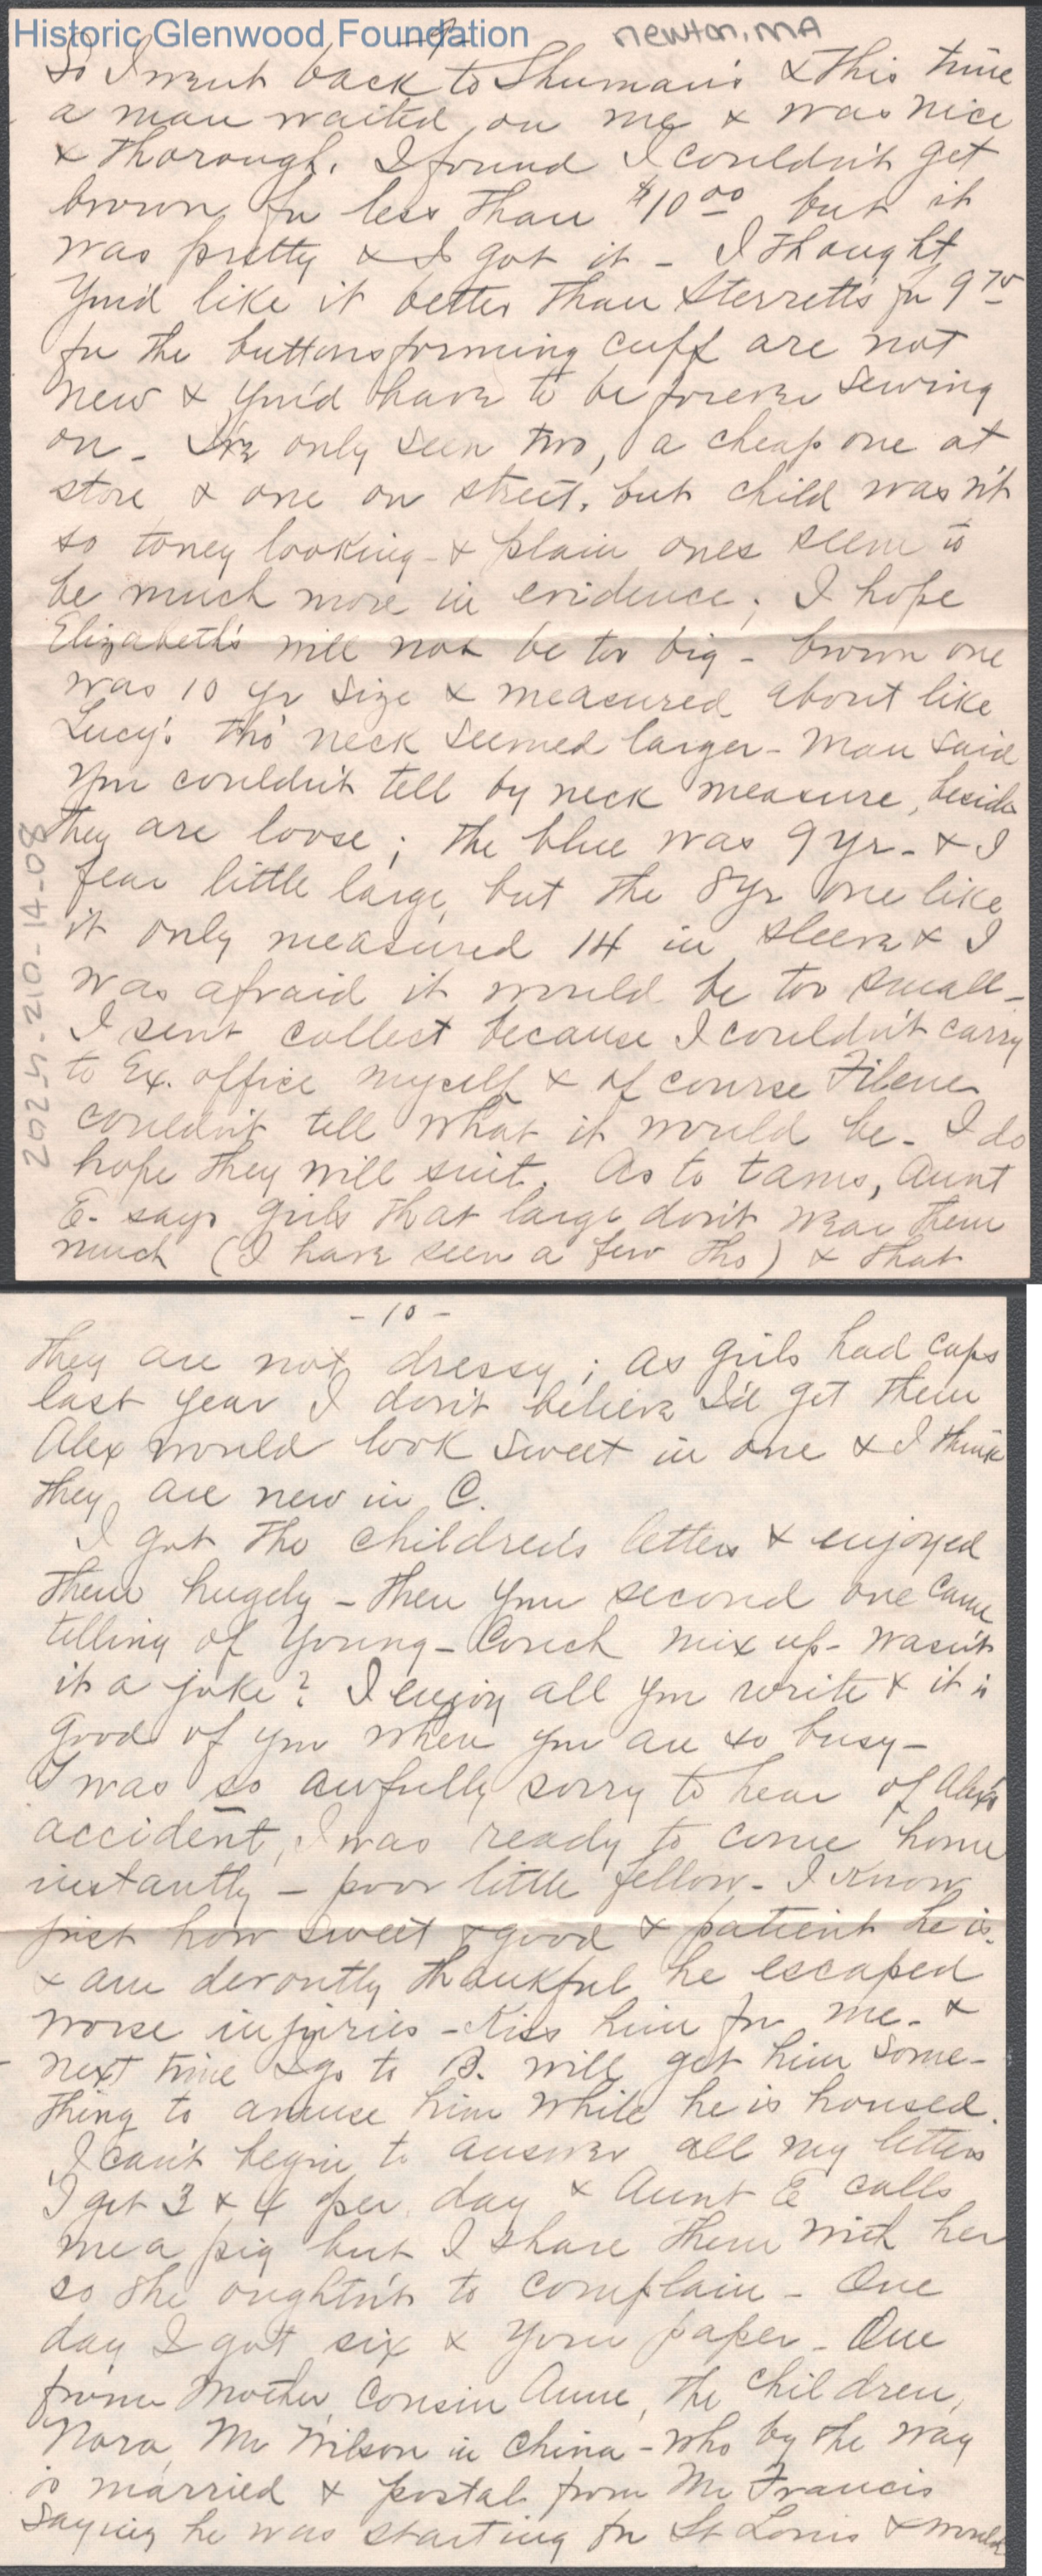 Historic Glenwood Foundation
newton, MA
-9-
So I went back to Shuman's & this time
a man waited on me & was nice
& thorough. I found I couldn't get
brown for less than $10 00 but it
was pretty & I got it - I thought
You'd like it better than Sterrett's for 9 75
for the buttons forming cuff are not
new & you'd have to be forever sewing
on - I've only seen two, a cheap one at
store & one on street, but child wasn't
so toney looking - & plain ones seem to
be much more in evidence; I hope
Elizabeth's will not be too big - brown one
was 10 yr size & measured about like
Lucy's tho' neck seemed larger - Man said
you couldn't tell by neck measure, beside
they are loose; the blue was 9 yr - & I
fear little large, but the 8 yr one like
it only measured 14 in sleeve & I
was afraid it would be too small -
I sent collect because I couldn't carry
to Ex. office myself & of course Filene
couldn't tell what it would be - I do
hope they will suit. As to tams, Aunt
E- says girls that large don't wear them
much (I have seen a few tho) & that
2025-210-14-08
-10-
they are not dressy; as girls had caps
last year I don't believe I'd get them
Alex would look sweet in one & I think
they are new in C.
I got the children's letters & enjoyed
them hugely - then your second one came
telling of Young - Couch mix up - wasn't
it a joke? I enjoy all you write & it is
good of you when you are so busy -
I was so awfully sorry to hear of Alex's
accident, I was ready to come home
instantly - poor little fellow - I know
just how sweet & good & patient he is.
& am devoutly thankful he escaped
worse injuries - Kiss him for me - &
next time I go to B. will get him some-
thing to amuse him while he is housed.
I can't begin to answer all my letters
I get 3 & 4 per day & Aunt E calls
me a pig but I share them with her
so she oughtn't to complain - One
day I got six & your paper - One
from Mother, Cousin Anne, the children,
Nora, Mr Wilson in China - who by the way
is married & postal from Mr Francis
saying he was starting for St Louis & would